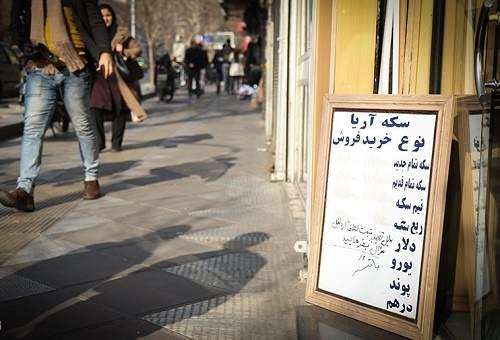 سکه آریا
نوع خرید فروش
سکه تمام جدید
سکه تمام قدیم
نیم سکه
ربع سکه
دلار
یورو
پوند
درهم